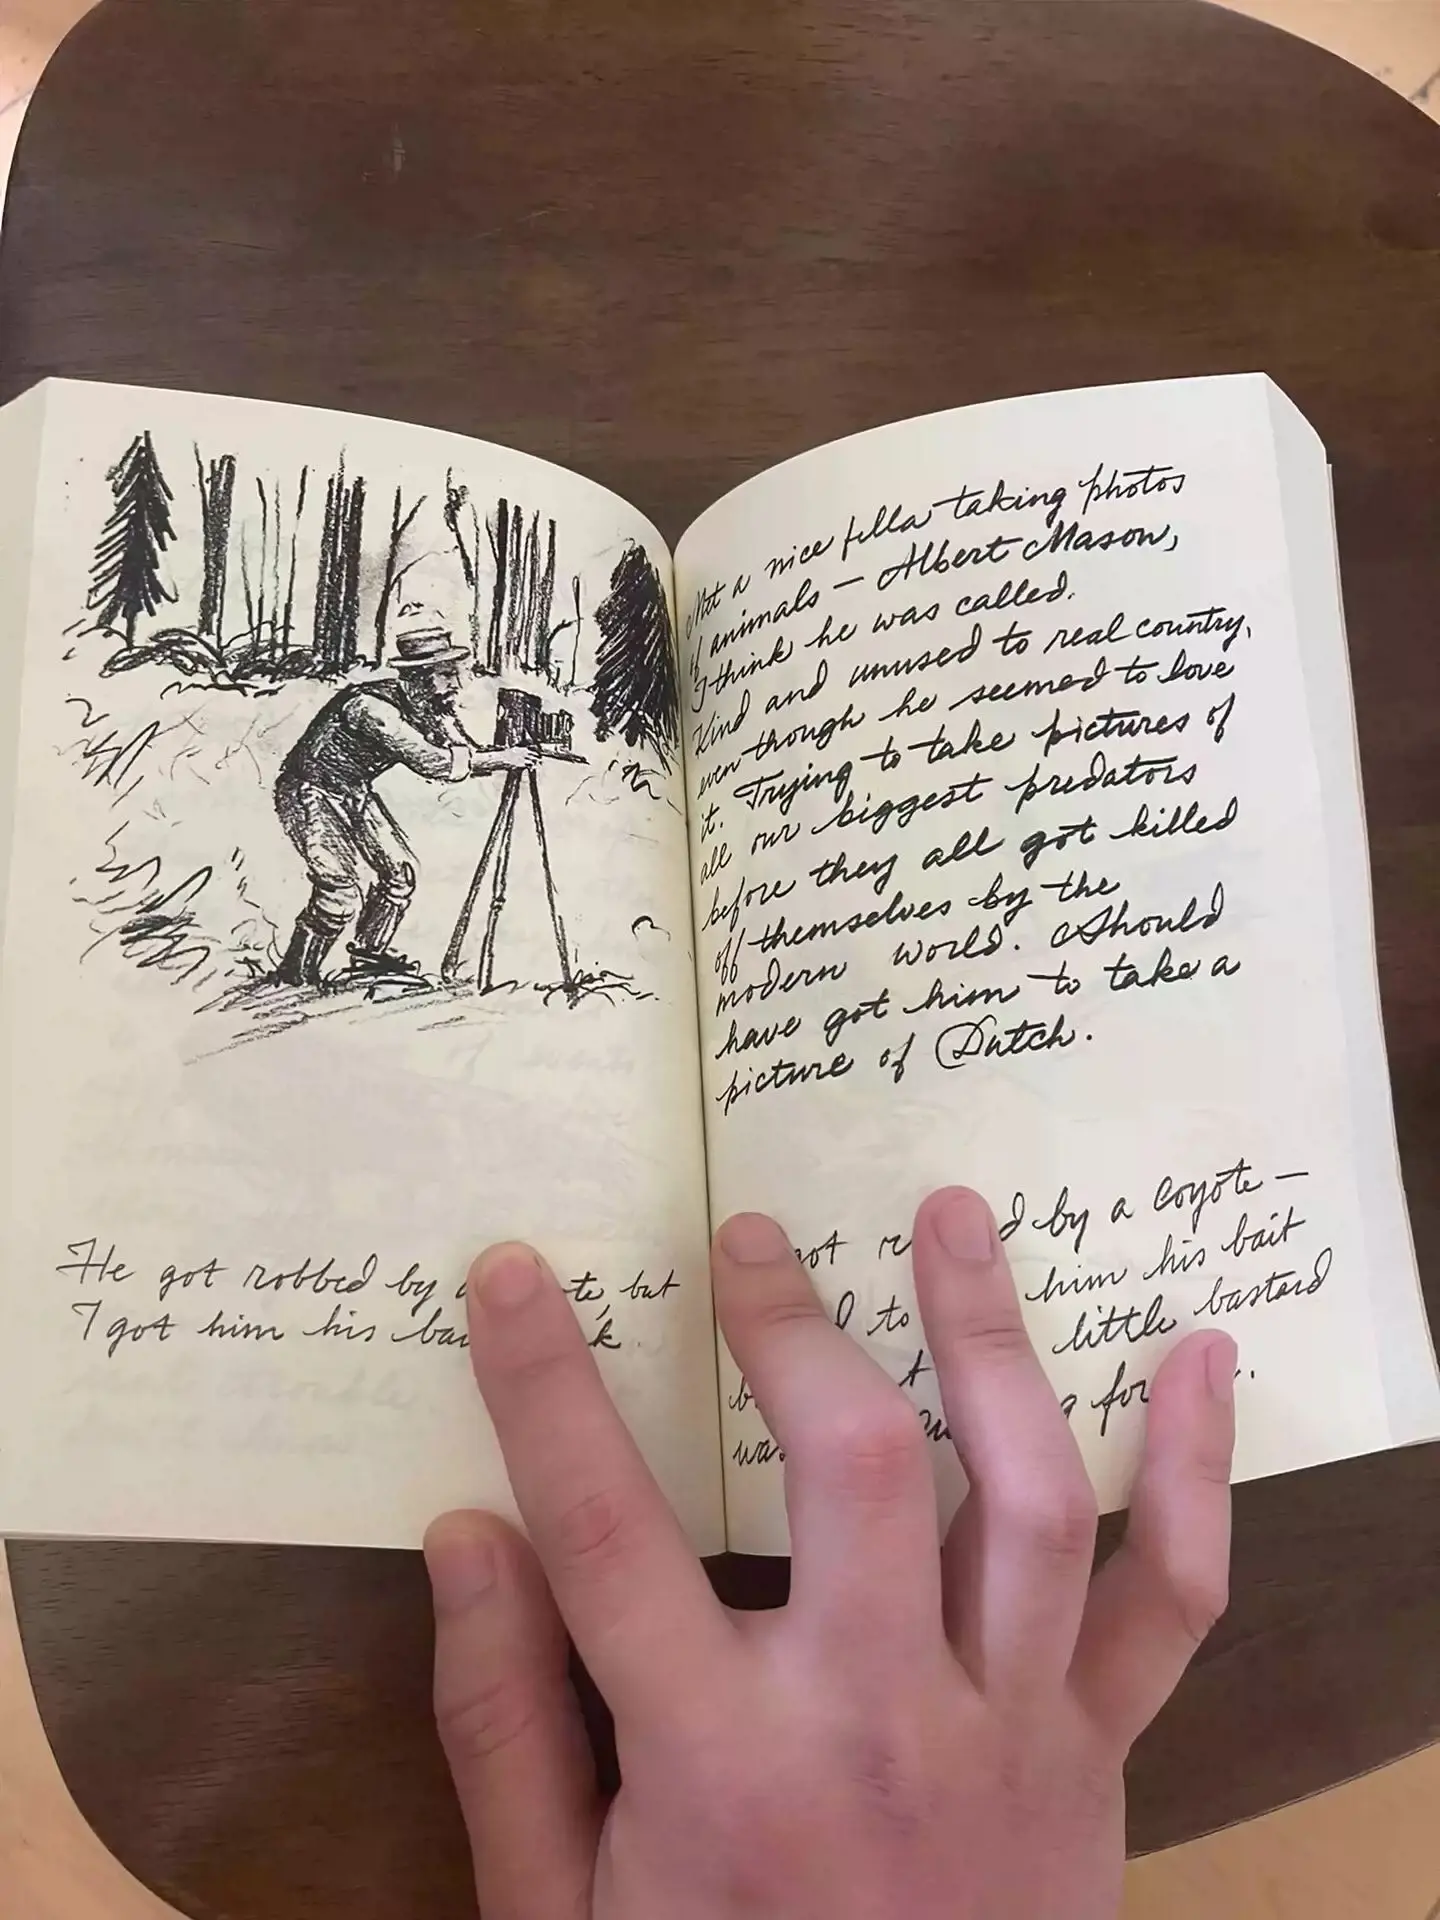 He got robbed by a, but
I got him his
Met a nice fella taking photos
of animals — Albert Mason,
I think he was called.
Kind and unused to real country,
even though he seemed to love
it. Trying to take pictures of
all our biggest predators
before they all got killed
off themselves by the
modern world. Should
have got him to take a
picture of Dutch.
got by a coyote —
to him his bait
little bastard
was